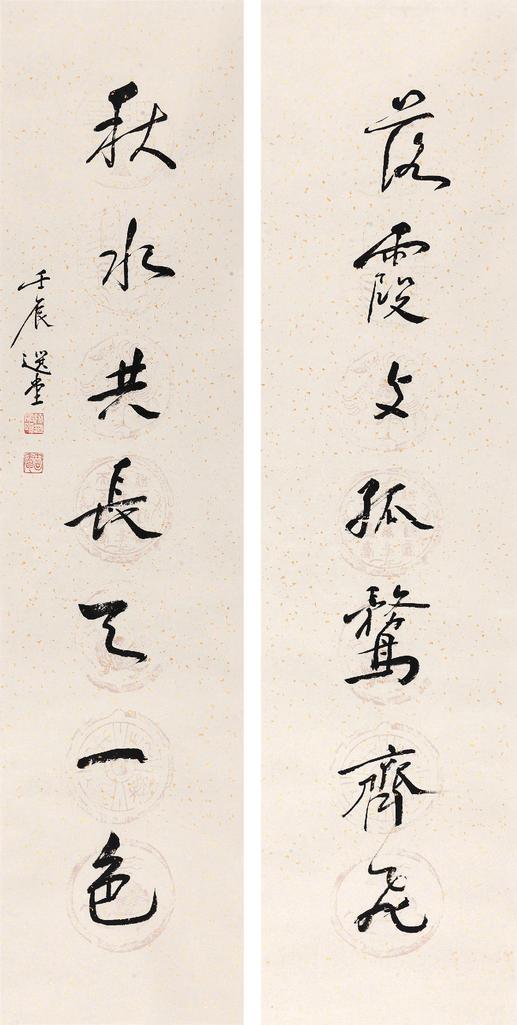 落霞文孤鶩齊飛
秋水共長天一色
壬辰 選堂